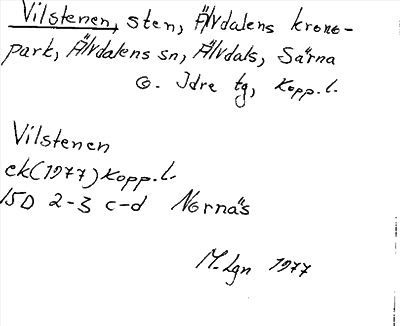 Vilstenen, sten, Älvdalens krono-
park, Älvdalens sn, Älvdals, Särna
o. Idre tg, Kopp. l.
Vilstenen
ek (1977) Kopp. l.
15D 2-3 c-d Nornäs
M. Lgn 1977